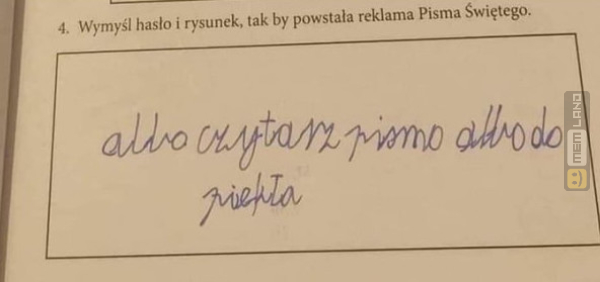 4. Wymyśl hasło i rysunek, tak by powstała reklama Pisma Świętego.
albo czytasz pismo albo do
piekła
MEM LAND